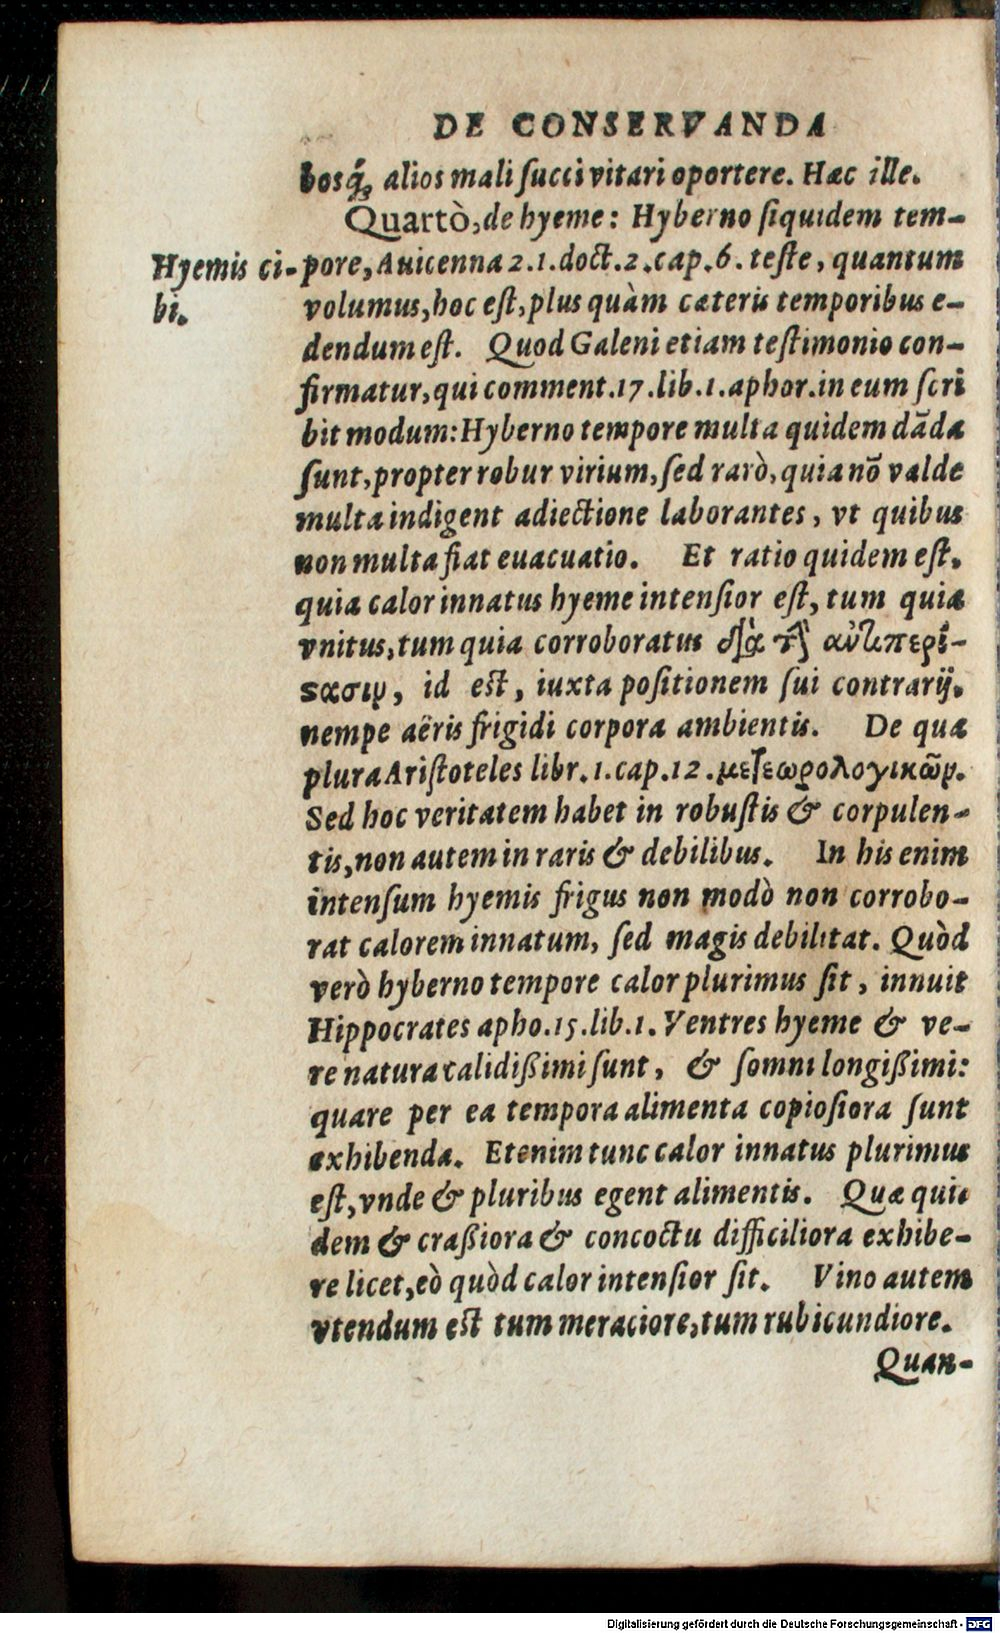 DE CONSERVANDA
bosq́ꝫ alios mali ſucci vitari oportere. Hæc ille.
Quartò, de hyeme: Hyberno ſiquidem tem-
Hyemis ci-
bi.
pore, Auicenna 2.1.doct.2.cap.6. teste, quantum
volumus, hoc eſt, plus quàm cæteris temporibus e-
dendum eſt. Quod Galeni etiam teſtimonio con-
firmatur, qui comment.17.lib.1.aphor.in eum ſcri
bit modum: Hyberno tempore multa quidem dāda
ſunt, propter robur virium, ſed rarò, quia nō valde
multa indigent adiectione laborantes, vt quibus
non multa fiat euacuatio. Et ratio quidem eſt,
quia calor innatus hyeme intenſior eſt, tum quia
vnitus, tum quia corroboratus διὰ τὴν ἀντιπερί-
ϛασιν, id est, iuxta poſitionem ſui contrarij,
nempe aëris frigidi corpora ambientis. De qua
plura Ariſtoteles libr.1.cap.12.μετεωρολογικῶν.
Sed hoc veritatem habet in robuſtis & corpulen-
tis, non autem in raris & debilibus. In his enim
intenſum hyemis frigus non modò non corrobo-
rat calorem innatum, ſed magis debilitat. Quòd
verò hyberno tempore calor plurimus ſit, innuit
Hippocrates apho.15.lib.1. Ventres hyeme & ve-
re natura calidißimi ſunt, & ſomni longißimi:
quare per ea tempora alimenta copioſiora ſunt
exhibenda. Etenim tunc calor innatus plurimus
eſt, vnde & pluribus egent alimentis. Quæ qui-
dem & craßiora & concoctu difficiliora exhibe-
re licet, eò quòd calor intenſior ſit. Vino autem
vtendum est tum meraciore, tum rubicundiore.
Quan-
Digitalisierung gefördert durch die Deutsche Forschungsgemeinschaft - DFG